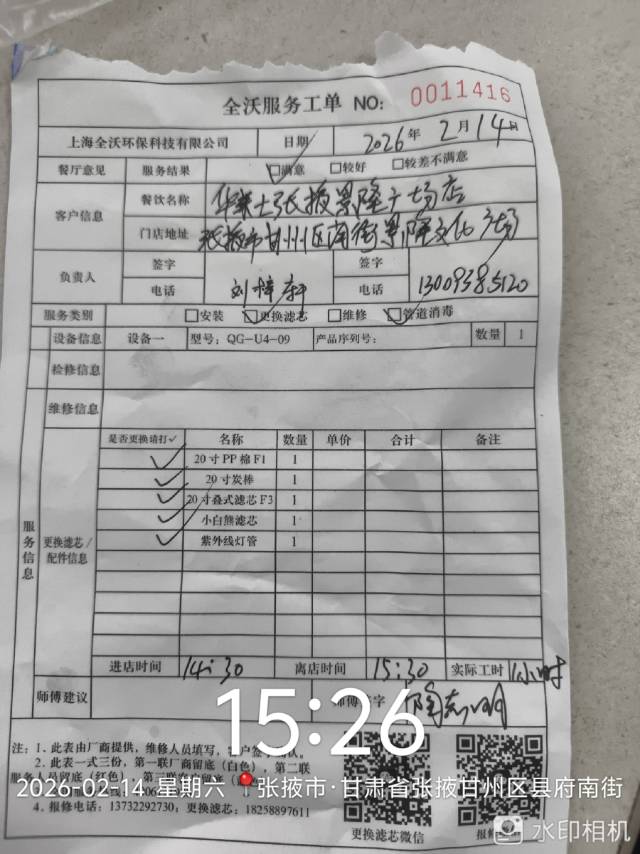 全沃服务工单 NO: 0011416
上海全沃环保科技有限公司 日期 2026年2月14日
餐厅意见 服务结果 □满意 □较好 □较差不满意
客户信息 餐饮名称 华莱士张掖景隆广场店
门店地址 张掖市甘州区南街景隆文化广场
负责人 签字 签字
电话 刘梓轩 电话 13009385120
服务类别 □安装 □更换滤芯 □维修 □管道消毒
设备信息 设备一 型号:QG-U4-09 产品序列号: 数量 1
检修信息
维修信息
服务信息
更换滤芯/配件信息
是否更换请打✓ 名称 数量 单价 合计 备注
✓ 20寸PP棉F1 1
✓ 20寸炭棒 1
✓ 20寸叠式滤芯F3 1
✓ 小白熊滤芯 1
✓ 紫外线灯管 1
进店时间 14:30 离店时间 15:30 实际工时 1小时
师傅建议 师傅签字 陶志明
15:26
注:1.此表由厂商提供,维修人员填写,客户签字确认。
2.此表一式三份,第一联厂商留底(白色),第二联
服务人员留底(红色),第三联
2026-02-14 星期六 张掖市·甘肃省张掖甘州区县府南街
4.报修电话:13732292730,更换滤芯:18258897611
更换滤芯微信 报修
水印相机